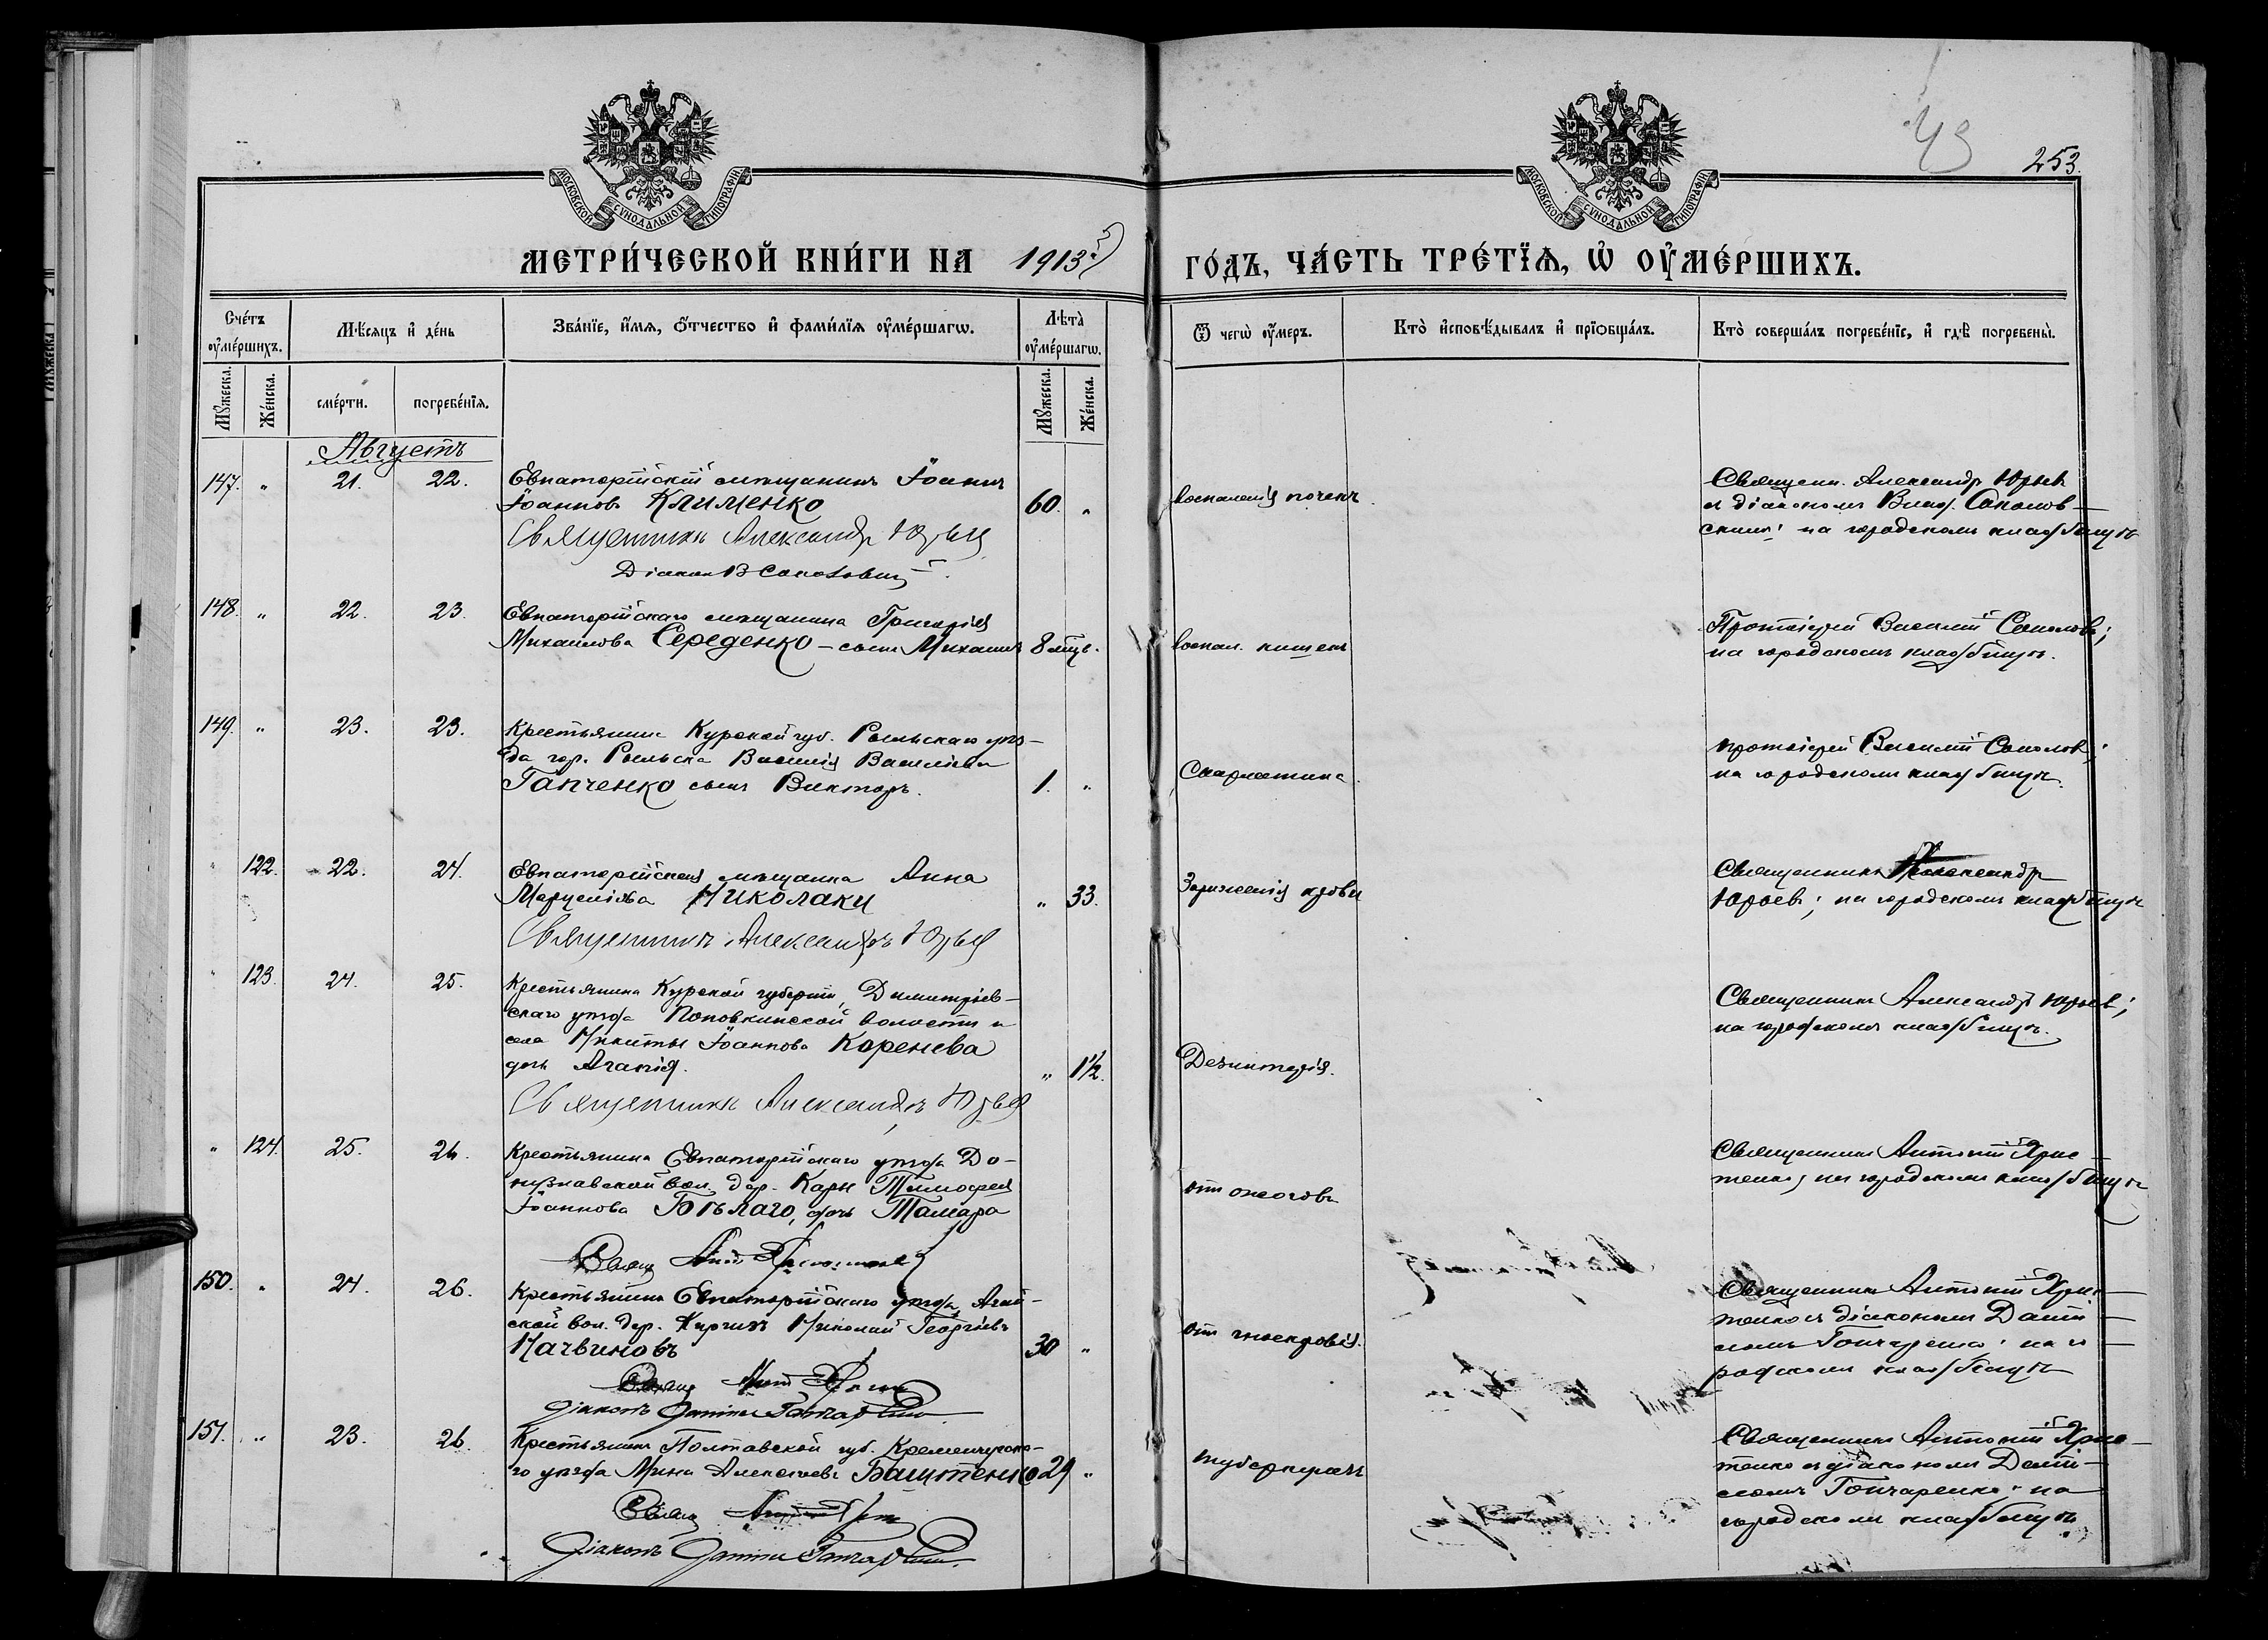 43
253.
МОСКОВСКОЙ СУНОДАЛЬНОЙ ТИПОГРАФІИ
МОСКОВСКОЙ СУНОДАЛЬНОЙ ТИПОГРАФІИ
МЕТРИ́ЧЕСКОЙ КНИ́ГИ НА 1913
ГО́ДЪ, ЧА́СТЬ ТРЕ́ТЇѦ, Ѡ҆ ОУ҆МЕ́РШИХЪ.
Сче́тъ оу҆ме́ршихъ.
Мѣ́сяцъ и҆ де́нь
Зва́нїе, и҆́мѧ, ѻ҆́тчество и҆ фами́лїѧ оу҆ме́ршагѡ.
Лѣ́та̀ оу҆ме́ршагѡ.
Ѿ чегѡ̀ оу҆́меръ.
Кто̀ и҆сповѣ́дывалъ и҆ прїѡбща́лъ.
Кто̀ соверша́лъ погребе́нїе, и҆ гдѣ̀ погребены̀.
Мꙋ́жеска.
Же́нска.
сме́рти.
погребе́нїѧ.
Мꙋ́жеска.
Же́нска.
Августъ
147. " 21. 22. Евпаторійскій мѣщанинъ Іоаннъ
Іоанновъ Клименко 60. "
Священникъ Александръ Юрьев
Діаконъ В Соколовскій
воспаленія почекъ
Священ. Александръ Юрьев
съ діакономъ Влад. Соколов-
скимъ; на городскомъ кладбищѣ
148. " 22. 23. Евпаторійскаго мѣщанина Григорія
Михаилова Середенко – сынъ Михаилъ 8 мѣц. "
воспал. кишекъ
Протоіерей Василій Соколовъ;
на городскомъ кладбищѣ.
149. " 23. 23. Крестьянина Курской губ. Рыльскаго уѣз-
да гор. Рыльска Василія Васильева
Гапченко сынъ Викторъ. 1. "
Скарлатина.
протоіерей Василій Соколовъ;
на городскомъ кладбищѣ.
" 122. 22. 24. Евпаторійская мѣщанка Анна
Николаки " 33.
Священникъ Александръ Юрьев
Зараженія крови
Священникъ Александръ
Юрьевъ; на городскомъ кладбищѣ
" 123. 24. 25. Крестьянина Курской губерніи, Димитріев-
скаго уѣзда Поповкинской волости и
села Никиты Іоаннова Коренева
дочь Агапія. " 1½.
Священникъ Александръ Юрьев
Дезинтерія.
Священникъ Александръ Юрьев;
на городскомъ кладбищѣ.
" 124. 25. 26. Крестьянина Евпаторійскаго уѣзда До-
нузлавской вол. дер. Кары Тимофея
Іоаннова Бѣлаго, дочь Тамара
Свящ Ант
отъ ожоговъ
Священникъ Антоній Хрис-
тенко; на городскомъ кладбищѣ
150. " 24. 26. Крестьянинъ Евпаторійскаго уѣзда, Агай-
ской вол. дер. Киргизъ Николай Георгіевъ
Начвиновъ 30 "
Свящ Ант
Діаконъ Даніилъ Гончаренко
отъ гноекровія.
Священникъ Антоній Хрис-
тенко съ діакономъ Даніи-
ломъ Гончаренко; на го-
родскомъ кладбищѣ
151. " 23. 26. Крестьянинъ Полтавской губ. Кременчугска-
го уѣзда Мина Алексѣевъ Баштенко 29 "
Свящ
Діаконъ Даніилъ Гончаренко
туберкулезъ
Священникъ Антоній Хрис-
тенко съ діакономъ Даніи-
ломъ Гончаренко; на
городскомъ кладбищѣ